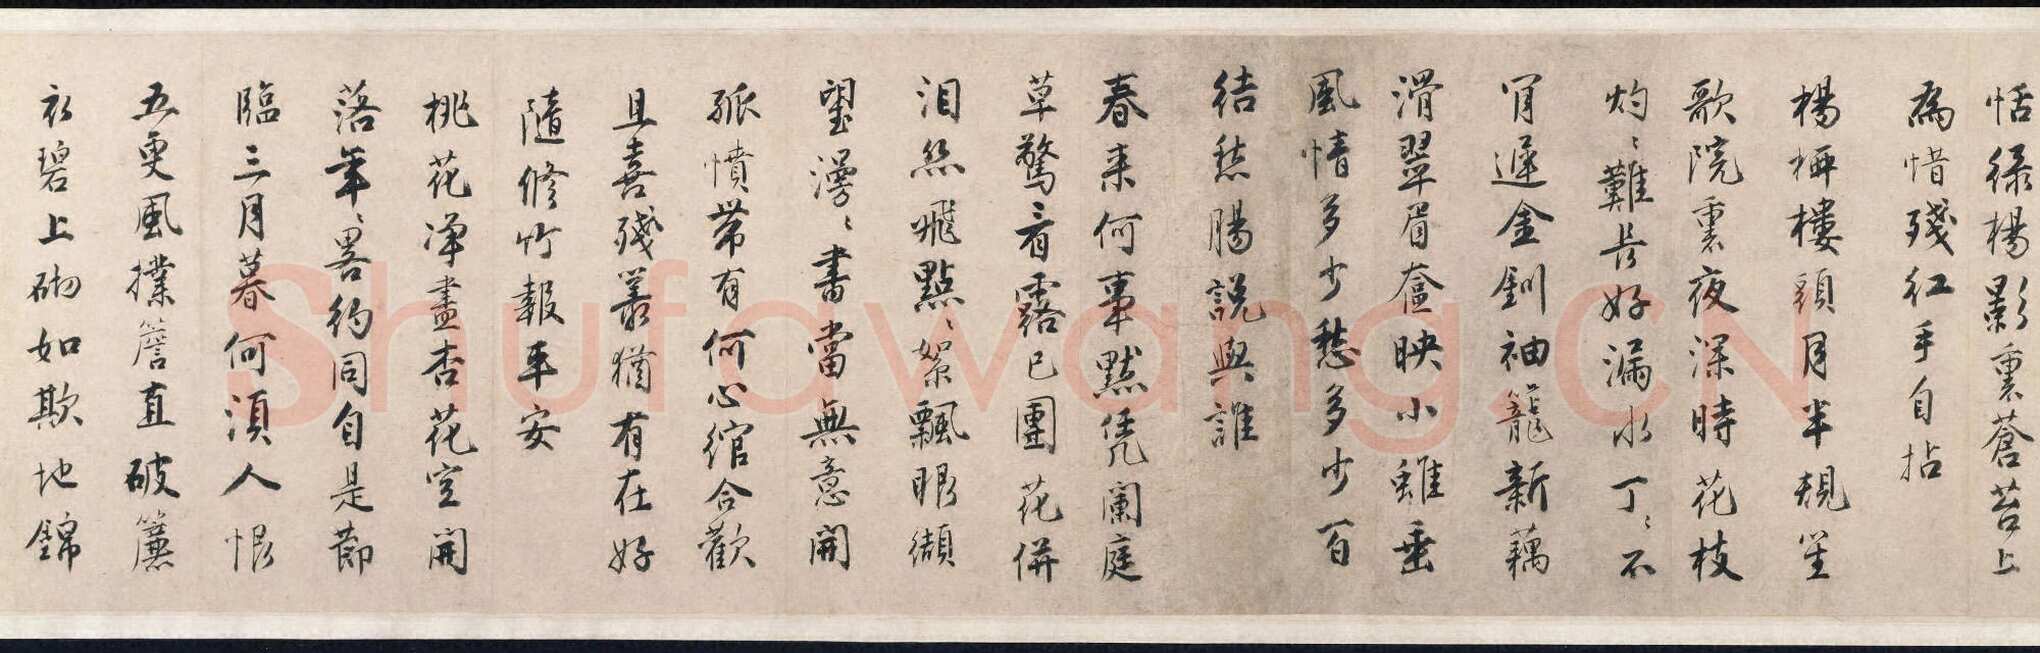 恬綠楊影裏蒼苔上
為惜殘紅手自拈
楊柳樓頭月半規笙
歌院裏夜深時花枝
灼〻難長好漏水丁〻不
肯遲金釧袖籠新藕
滑翠眉奩映小垂
風情多少愁多少百
結愁腸說與誰
春來何事默凭闌庭
草驚看露已團花併
泪絲飛點〻絮飄眼纈
望漫〻書當無意開
孤憤帶有何心綰合歡
且喜殘叢猶有在好
隨修竹報平安
桃花淨盡杏花空開
落年〻畧約同自是節
臨三月暮何須人恨
五更風撲簷直破簾
衣碧上砌如欺地錦
Shufawang.CN